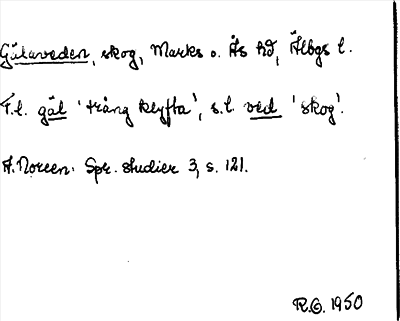 Gälaveden, skog, Marks o. Ås hd, Älbgs l.
F.l. gäl 'trång klyfta', s.l. ved 'skog'.
A. Noreen. Spr. studier 3, s. 121.
R.G. 1950